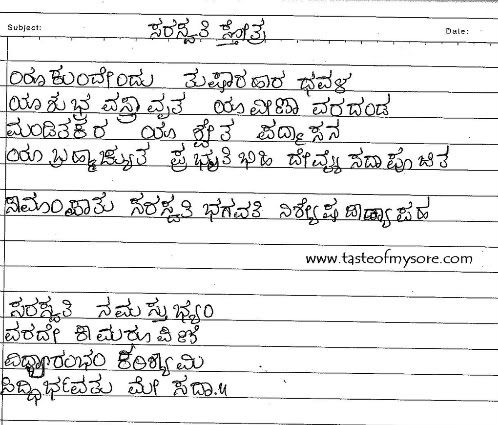 ಸರಸ್ವತಿ ಸ್ತೋತ್ರ
Subject: Date:
ಯಾಕುಂದೇಂದು ತುಷಾರಹಾರ ಧವಳ
ಯಾಶುಭ್ರ ವಸ್ತ್ರಾವೃತ ಯಾವೀಣಾ ವರದಂಡ
ಮಂಡಿತಕರ ಯಾ ಶ್ವೇತ ಪದ್ಮಾಸನ
ಯಾ ಬ್ರಹ್ಮಾಚ್ಯುತ ಪ್ರಭ್ರುತಿಭಿಹಿ ದೇವ್ಯೈ ಸದಾಪೂಜಿತ
ಸಾಮಾಂಪಾತು ಸರಸ್ವತಿ ಭಗವತಿ ನಿಶ್ಯೇಷ ಜಾಡ್ಯಾಪಹ
www.tasteofmysore.com
ಸರಸ್ವತಿ ನಮಸ್ತುಭ್ಯಂ
ವರದೇ ಕಾಮರೂಪಿಣಿ
ವಿದ್ಯಾರಂಭಂ ಕರಿಶ್ಯಾಮಿ
ಸಿದ್ಧಿರ್ಭವತು ಮೇ ಸದಾ.॥